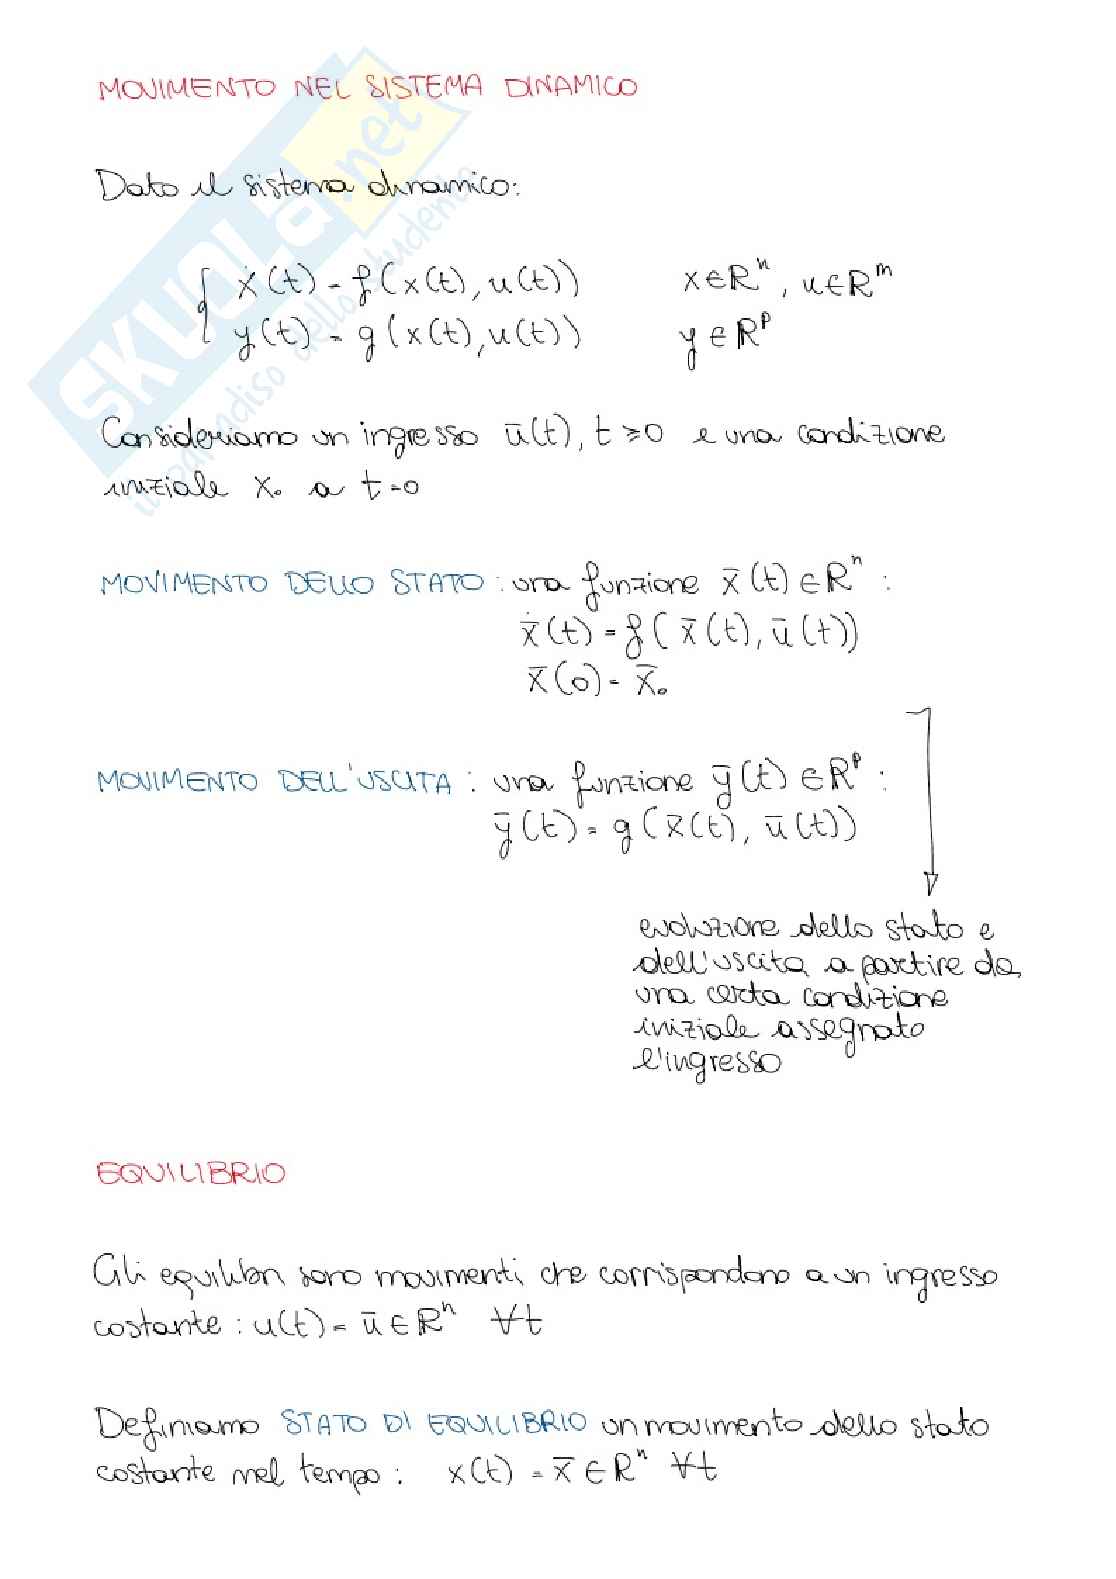 MOVIMENTO NEL SISTEMA DINAMICO
SKUOLA.net
il paradiso dello studente
Dato il sistema dinamico:
{ ẋ(t) = f(x(t), u(t)) x ∈ ℝⁿ, u ∈ ℝᵐ
y(t) = g(x(t), u(t)) y ∈ ℝᵖ
Consideriamo un ingresso ū(t), t ≥ 0 e una condizione
iniziale x₀ a t = 0
MOVIMENTO DELLO STATO: una funzione x̄(t) ∈ ℝⁿ:
x̄̇(t) = f(x̄(t), ū(t))
x̄(0) = x̄₀
MOVIMENTO DELL'USCITA: una funzione ȳ(t) ∈ ℝᵖ:
ȳ(t) = g(x̄(t), ū(t))
evoluzione dello stato e
dell'uscita a partire da
una certa condizione
iniziale assegnato
l'ingresso
EQUILIBRIO
Gli equilibri sono movimenti che corrispondono a un ingresso
costante: u(t) = ū ∈ ℝⁿ ∀t
Definiamo STATO DI EQUILIBRIO un movimento dello stato
costante nel tempo: x(t) = x̄ ∈ ℝⁿ ∀t